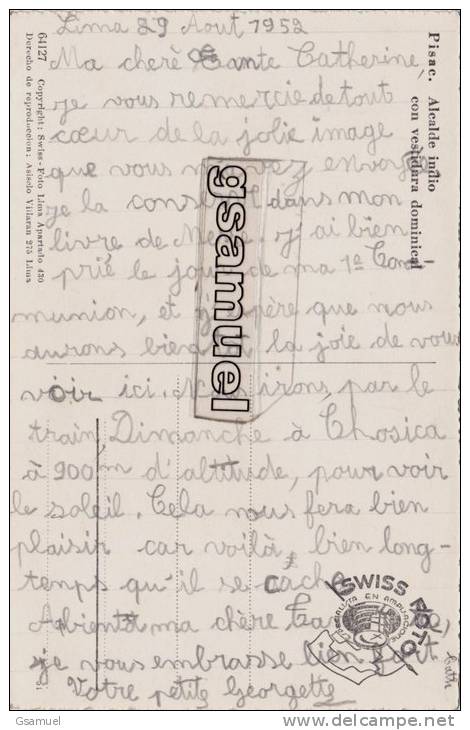 Lima 29 Aout 1952
Ma cherè Tante Catherine,
je vous remercie de tout
cœur de la jolie image
que vous m'avez envoyé
je la dans mon
livre de j'ai bien
prié le jour de ma 1e Com
munion, et j'espère que nous
aurons bientôt la joie de vous
voir ici. Nous irons par le
train, Dimanche à Chosica
à 900m d'altitude, pour voir
le soleil. Cela nous fera bien
plaisir car voilà bien long-
temps qu'il se cache.
A bientôt ma chère
je vous embrasse bien fort
Votre petite Georgette
Pisac. Alcalde indio
con vestidura dominical
64127 Copyright: Swiss-Foto Lima Apartado 430
Derecho de reproduccion: Asisclo Villaran 275 Lima
gsamuel
SWISS FOTO
Gsamuel
www.delcampe.net